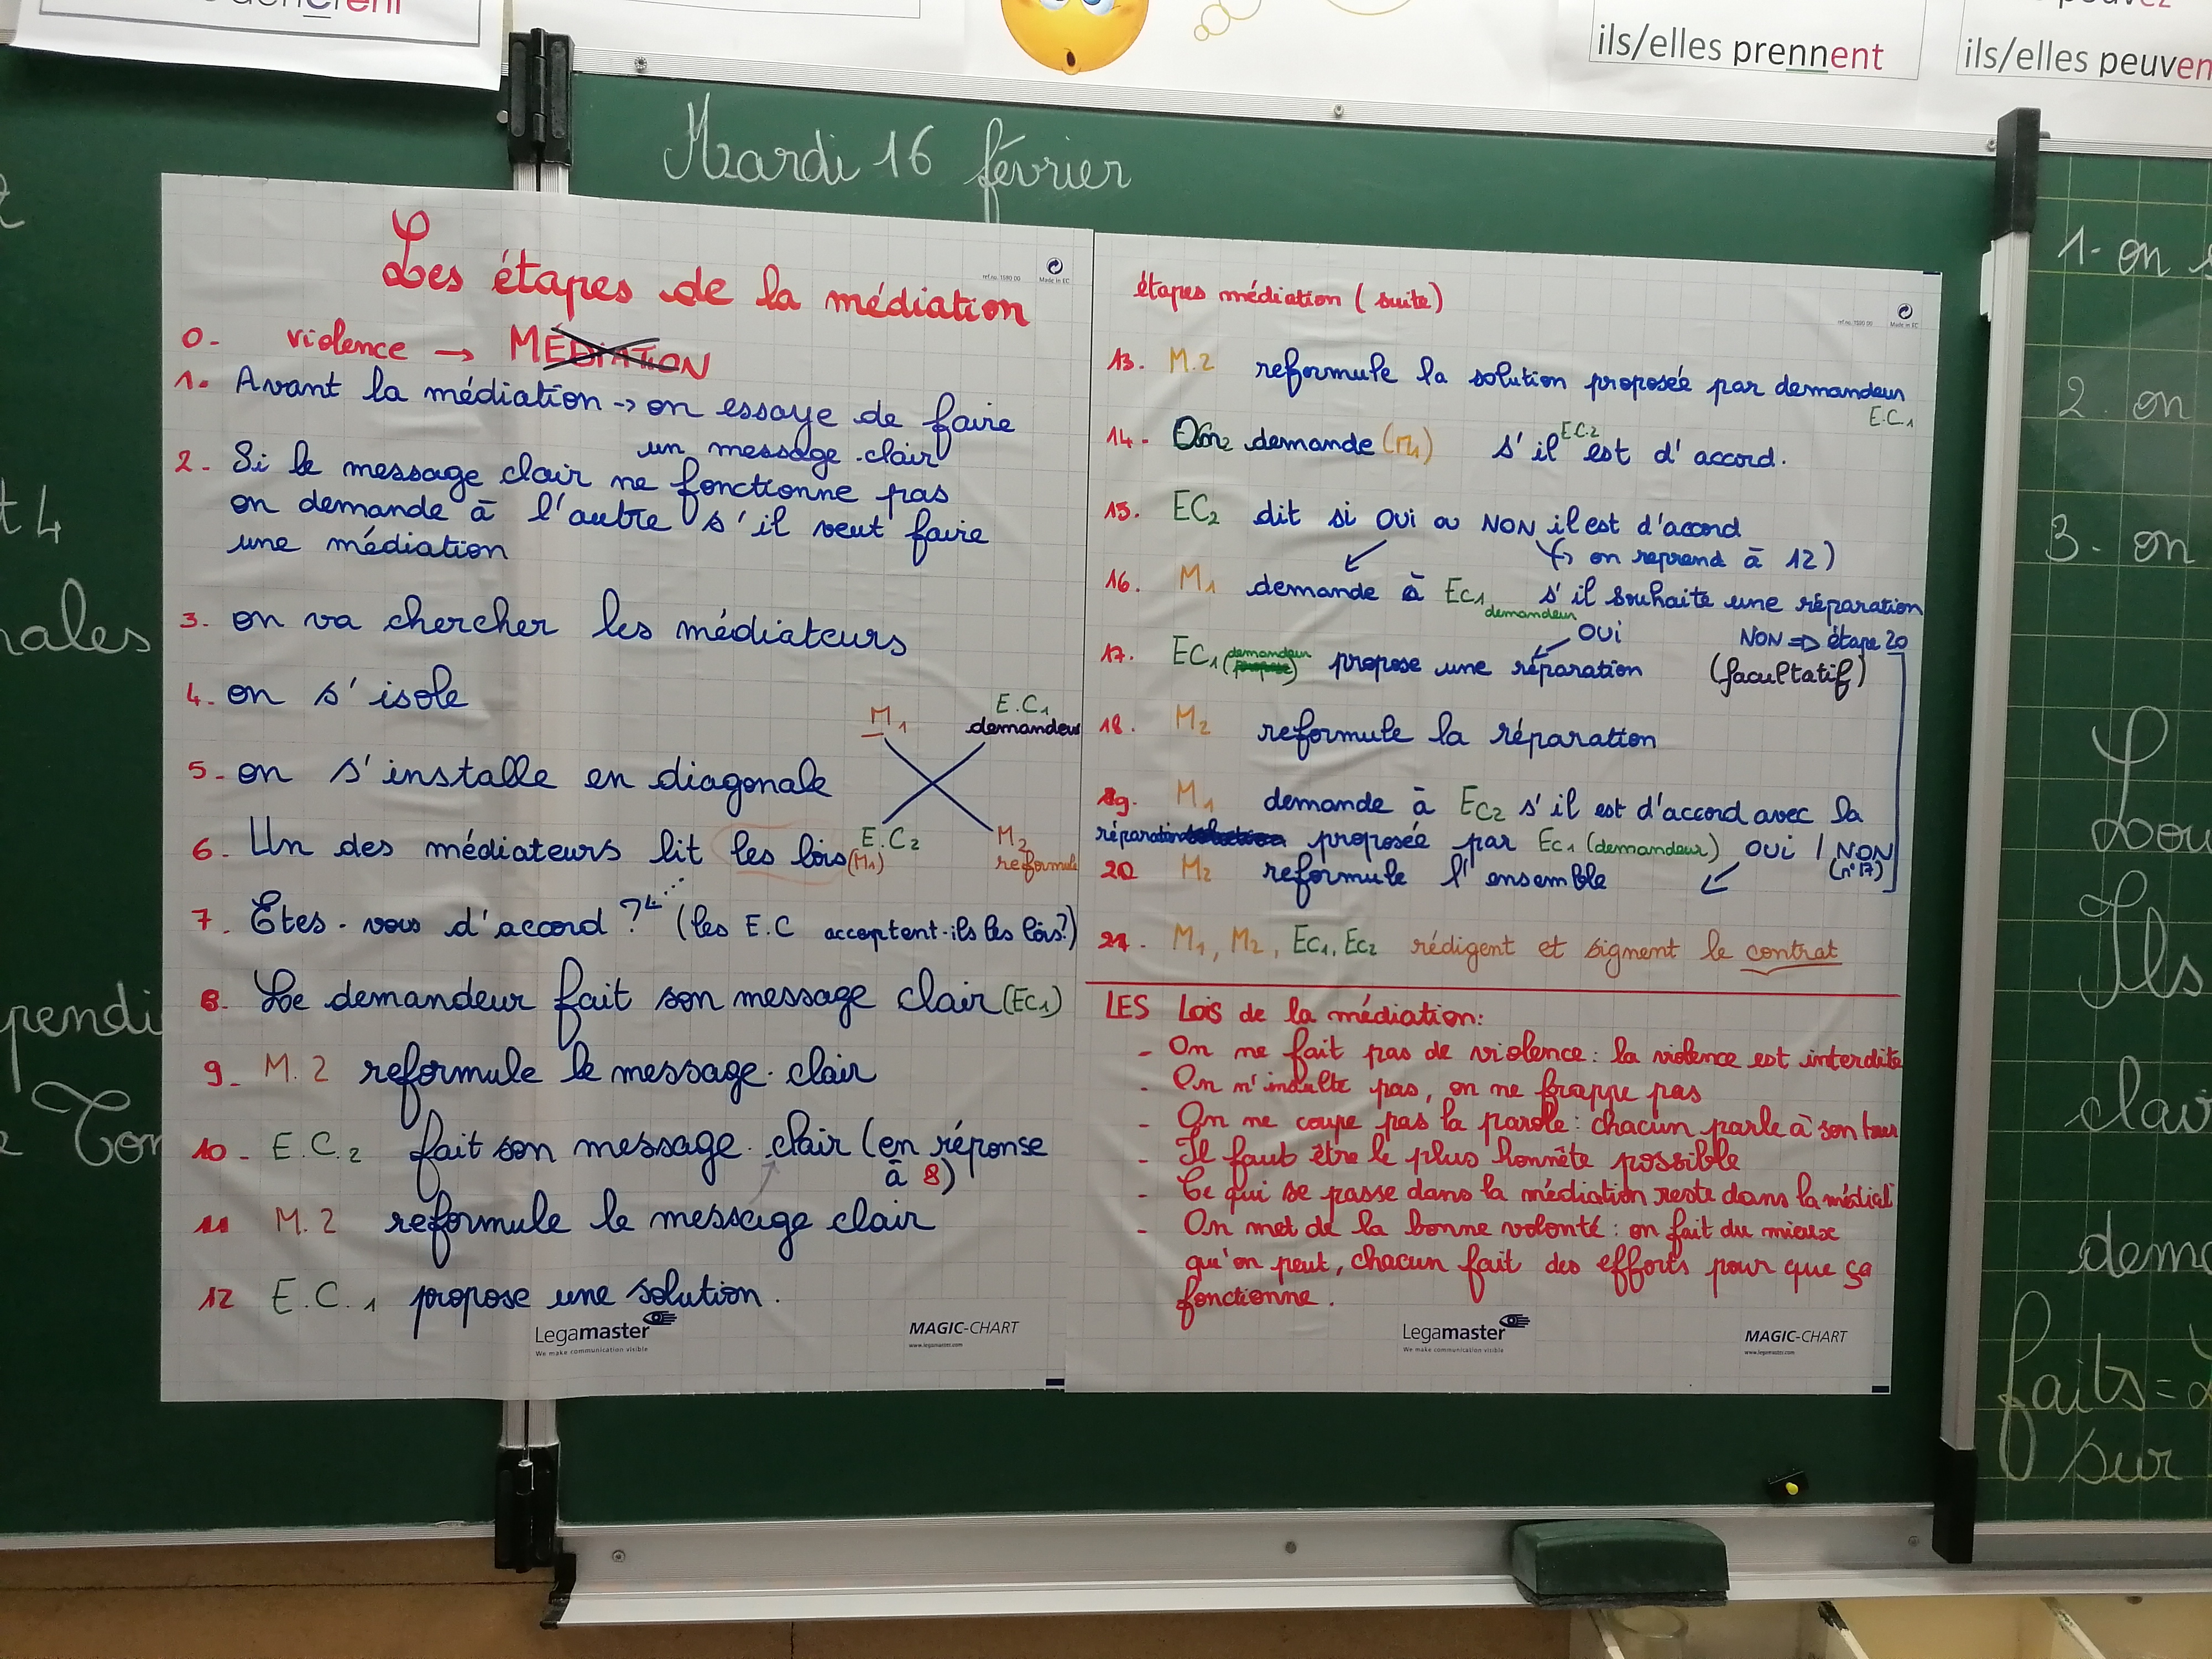 ils/elles prennent
ils/elles peuven
Mardi 16 février
Les étapes de la médiation
0- violence → MÉDIATION
1- Avant la médiation → on essaye de faire
un message-clair
2- Si le message clair ne fonctionne pas
on demande à l'autre s'il veut faire
une médiation
3- on va chercher les médiateurs
4- on s'isole
M1 E.C1
demandeur
5- on s'installe en diagonale
E.C2 M2
reformule
6- Un des médiateurs lit les lois (M1)
7- Êtes-vous d'accord ? (les E.C acceptent-ils les lois?)
8- Le demandeur fait son message clair (EC1)
9- M.2 reformule le message-clair
10- E.C.2 fait son message-clair (en réponse
à 8)
11 M.2 reformule le message clair
12 E.C.1 propose une solution.
Legamaster
We make communication visible
MAGIC-CHART
www.legamaster.com
étapes médiation (suite)
Made in EC
13. M.2 reformule la solution proposée par demandeur
E.C1
14- demande (M1) s'il E.C.2 est d'accord.
15. EC2 dit si OUI ou NON il est d'accord
on reprend à 12)
16. M1 demande à EC1 s'il souhaite une réparation
demandeur
OUI NON ⇒ étape 20
17. EC1 (demandeur) propose une réparation (facultatif)
18. M2 reformule la réparation
19. M1 demande à EC2 s'il est d'accord avec la
réparation proposée par EC1 (demandeur) OUI / NON
(n°17)
20 M2 reformule l'ensemble
21. M1, M2, EC1, EC2 rédigent et signent le contrat
LES Lois de la médiation:
- On ne fait pas de violence : la violence est interdite
- On n'insulte pas, on ne frappe pas
- On ne coupe pas la parole : chacun parle à son tour
- Il faut être le plus honnête possible
- Ce qui se passe dans la médiation reste dans la médiati
- On met de la bonne volonté : on fait du mieux
qu'on peut, chacun fait des efforts pour que ça
fonctionne.
Legamaster
We make communication visible
MAGIC-CHART
www.legamaster.com
t 4
nales
pendi
1- on
2. on
3- on
Ils
clair
faits =
sur